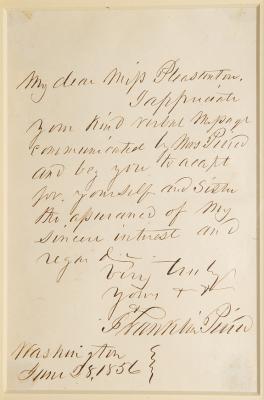 My dear Miss Pleasonton,
I appreciate
your kind verbal message
communicated by Mrs Pierce
and beg you to accept
for yourself and Sister
the assurance of my
sincere interest and
regard
Very truly
yours
Franklin Pierce
Washington
June 28, 1856